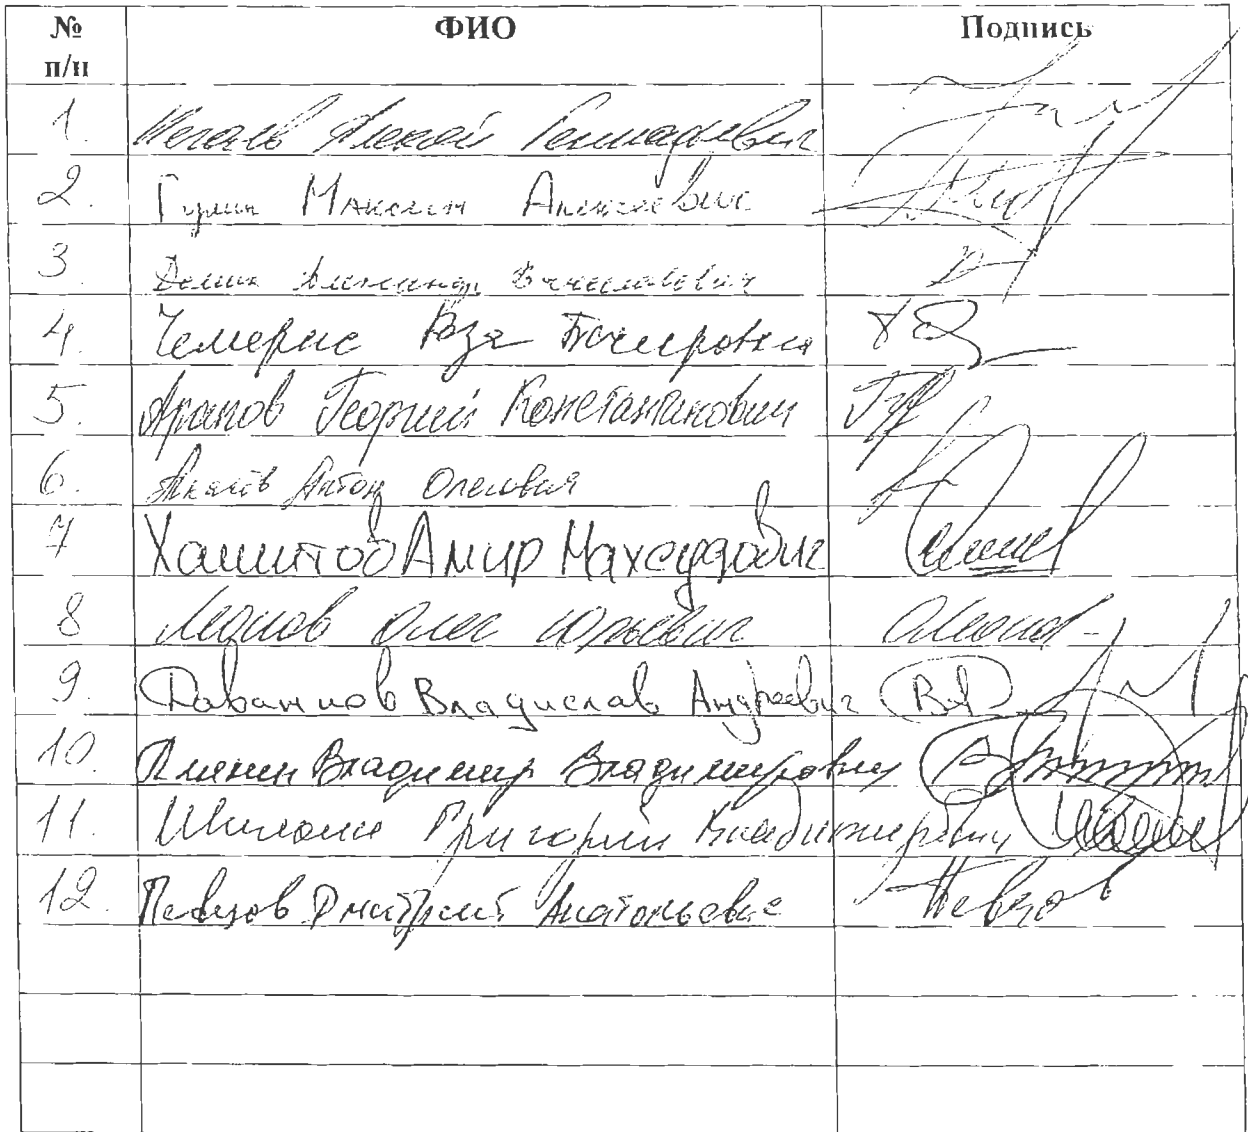 № п/п ФИО Подпись
1. Нечаев Алексей Геннадьевич
2. Гулин Максим Алексеевич
3. Демин Александр Вячеславович
4. Чемерис Роза Бясировна
5. Арапов Георгий Константинович
6. Антон Олегович
7 Хамитов Амир Махсудович
8 Леонов Олег Юрьевич Леонов
9. Даванков Владислав Андреевич ВД
10. Плякин Владимир Владимирович
11. Шилкин Григорий Владимирович
12. Певцов Дмитрий Анатольевич Певцов